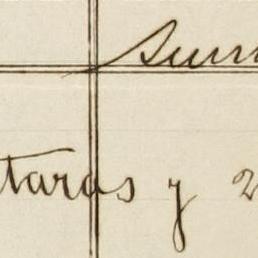 Sum
taras y 2